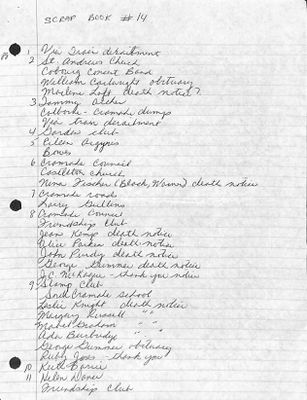 SCRAP BOOK #14
1 Via Train derailment
2 St. Andrews Church
Cobourg Concert Band
William Cartwright obituary
Marlene Loft death notice?
3 Tammy Archer
Colborne - Cramahe dumps
Via train derailment
4 Garden club
5 Eileen Argyris
Bowes
6 Cramahe Council
Castleton Church
Nina Fischer (Black, Warner) death notice
7 Cramahe roads
Larry Gullens
8 Cramahe Council
Friendship Club
Jean Kemp death notice
Alice Parker death notice
John Purdy death notice
George Grimmer death notice
J.C. McKague - thank you note
9 Stamp Club
South Cramahe school
Leslie Knight death notice
Margery Russell " "
Mabel Graham " "
Ada Burbidge " "
George Grimmer obituary
Ruby Joss - thank you
10 Ruth Barrie
11 Helen Doner
Friendship Club